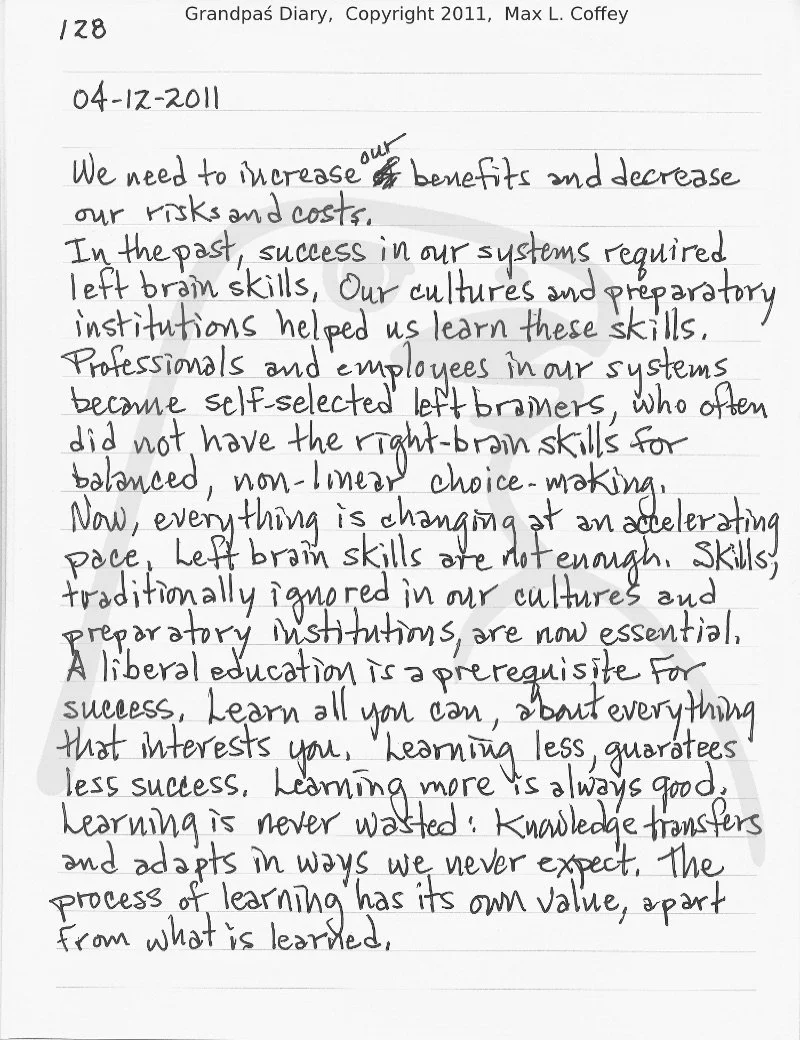 Grandpaś Diary, Copyright 2011, Max L. Coffey
128
04-12-2011
We need to increase our benefits and decrease
our risks and costs.
In the past, success in our systems required
left brain skills, Our cultures and preparatory
institutions helped us learn these skills.
Professionals and employees in our systems
became self-selected left brainers, who often
did not have the right-brain skills for
balanced, non-linear choice-making.
Now, everything is changing at an accelerating
pace. Left brain skills are not enough. Skills,
traditionally ignored in our cultures and
preparatory institutions, are now essential.
A liberal education is a prerequisite For
success. Learn all you can, about everything
that interests you. Learning less, guaratees
less success. Learning more is always good.
Learning is never wasted: Knowledge transfers
and adapts in ways we never expect. The
process of learning has its own value, apart
from what is learned.